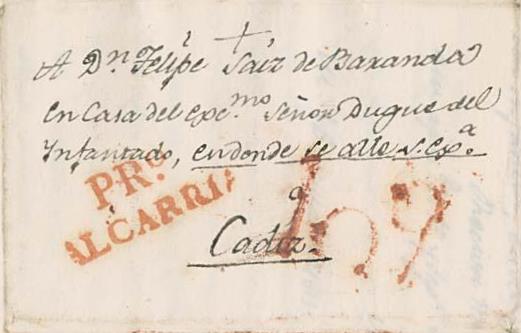 +
A Dn. Felipe Saiz de Baranda
en Casa del exc.mo Señor Duque del
Ynfantado, en donde se alle s. Exa.
a
Cadiz.
PR.L
ALCARRIA